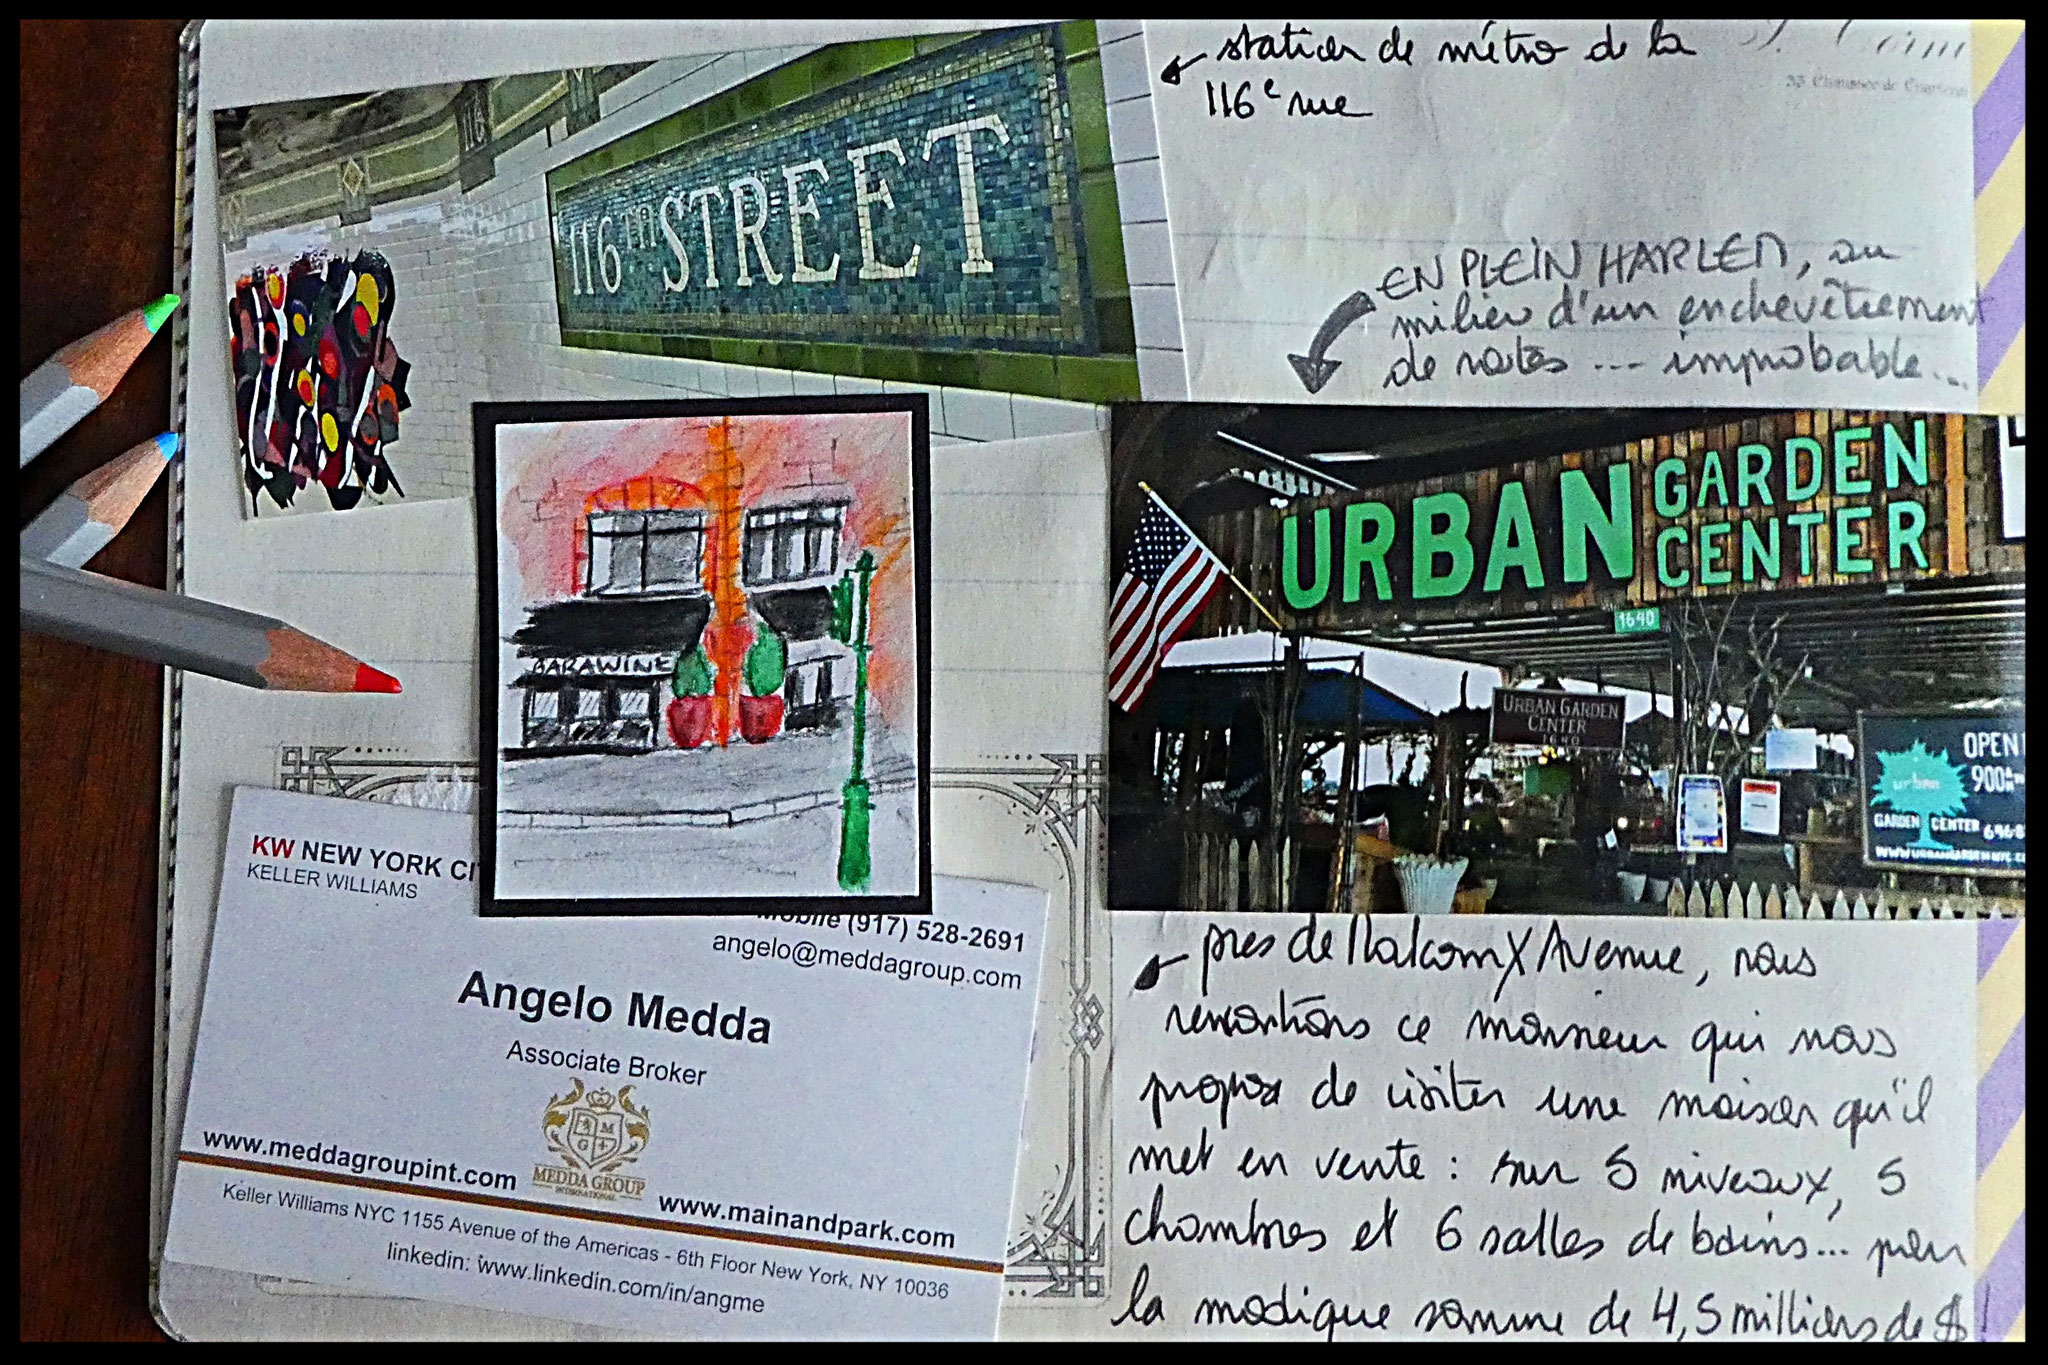 station de métro de la
116e rue
33 Chaussée de
116
116TH STREET
EN PLEIN HARLEM, au
milieu d'un enchevêtrement
de routes ... improbable...
URBAN GARDEN
CENTER
1640
URBAN GARDEN
CENTER
1640
OPEN
900AM
urban
GARDEN CENTER 646-8
WWW.URBANGARDENNYC.C
BARAWINE
KW NEW YORK CI
KELLER WILLIAMS
Mobile (917) 528-2691
angelo@meddagroup.com
Angelo Medda
Associate Broker
M
G
MEDDA GROUP
INTERNATIONAL
www.meddagroupint.com
www.mainandpark.com
Keller Williams NYC 1155 Avenue of the Americas - 6th Floor New York, NY 10036
linkedin: www.linkedin.com/in/angme
près de Malcom X Avenue, nous
rencontrons ce monsieur qui nous
propose de visiter une maison qu'il
met en vente : sur 5 niveaux, 5
chambres et 6 salles de bains... pour
la modique somme de 4,5 millions de $ !